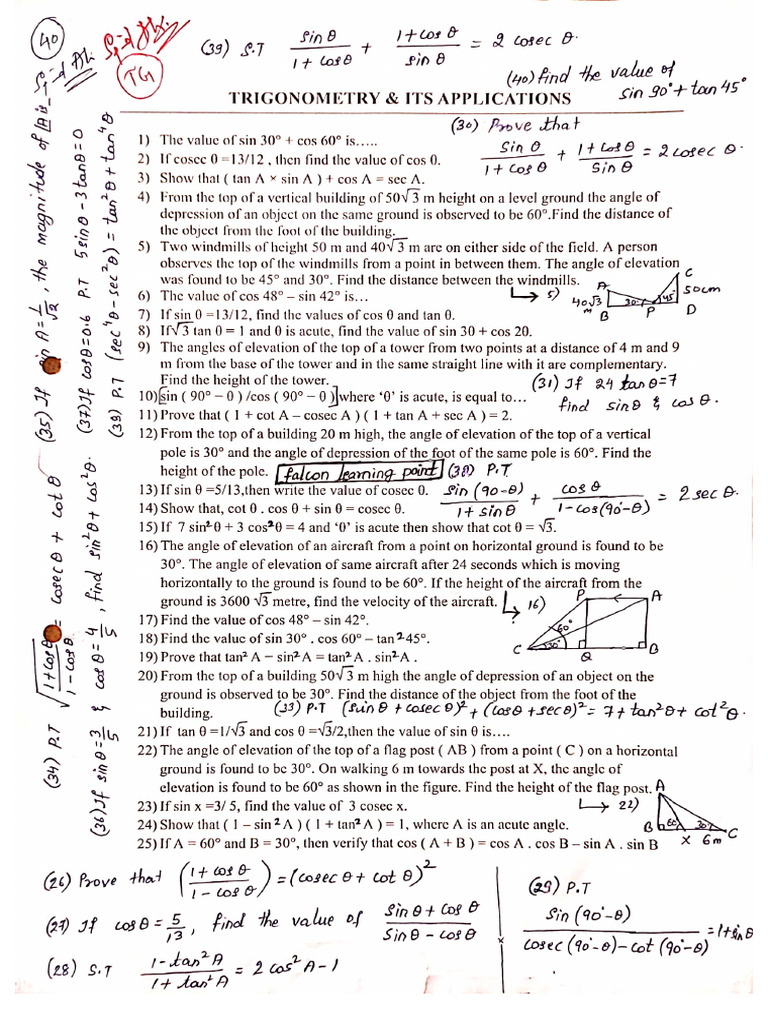 (40)
Sd/-
Sd/-
TG
(39) S.T sinθ / 1 + cosθ + 1 + cosθ / sinθ = 2 cosec θ.
(40) find the value of
sin 90° + tan 45°
TRIGONOMETRY & ITS APPLICATIONS
(30) Prove that
Sinθ / 1 + cosθ + 1 + cosθ / Sinθ = 2 cosec θ.
1) The value of sin 30° + cos 60° is…..
2) If cosec θ =13/12 , then find the value of cos θ.
3) Show that ( tan A × sin A ) + cos A = sec A.
4) From the top of a vertical building of 50√3 m height on a level ground the angle of
depression of an object on the same ground is observed to be 60°.Find the distance of
the object from the foot of the building.
5) Two windmills of height 50 m and 40√3 m are on either side of the field. A person
observes the top of the windmills from a point in between them. The angle of elevation
was found to be 45° and 30°. Find the distance between the windmills.
5) A 40√3 m B 30° P 45° C 50cm D
6) The value of cos 48° – sin 42° is…
7) If sin θ =13/12, find the values of cos θ and tan θ.
8) If √3 tan θ = 1 and θ is acute, find the value of sin 3θ + cos 2θ.
9) The angles of elevation of the top of a tower from two points at a distance of 4 m and 9
m from the base of the tower and in the same straight line with it are complementary.
Find the height of the tower.
(31) If 24 tanθ = 7
find sinθ & cosθ.
10)[sin ( 90° – θ ) /cos ( 90° – θ )]where ‘θ’ is acute, is equal to…
11) Prove that ( 1 + cot A – cosec A ) ( 1 + tan A + sec A ) = 2.
12) From the top of a building 20 m high, the angle of elevation of the top of a vertical
pole is 30° and the angle of depression of the foot of the same pole is 60°. Find the
height of the pole.
falcon learning point
(32) P.T
sin(90-θ) / 1 + sinθ + cosθ / 1-cos(90-θ) = 2 sec θ.
13) If sin θ =5/13,then write the value of cosec θ.
14) Show that, cot θ . cos θ + sin θ = cosec θ.
15) If 7 sin²θ + 3 cos²θ = 4 and ‘θ’ is acute then show that cot θ = √3.
16) The angle of elevation of an aircraft from a point on horizontal ground is found to be
30°. The angle of elevation of same aircraft after 24 seconds which is moving
horizontally to the ground is found to be 60°. If the height of the aircraft from the
ground is 3600 √3 metre, find the velocity of the aircraft.
16) P A 60° 30° C Q B
17) Find the value of cos 48° – sin 42°.
18) Find the value of sin 30° . cos 60° – tan²45°.
19) Prove that tan² A – sin² A = tan² A . sin² A .
20) From the top of a building 50√3 m high the angle of depression of an object on the
ground is observed to be 30°. Find the distance of the object from the foot of the
building.
(33) P.T (sinθ + cosecθ)² + (cosθ + secθ)² = 7 + tan²θ + cot²θ.
21) If tan θ =1/√3 and cos θ =√3/2,then the value of sin θ is….
22) The angle of elevation of the top of a flag post ( AB ) from a point ( C ) on a horizontal
ground is found to be 30°. On walking 6 m towards the post at X, the angle of
elevation is found to be 60° as shown in the figure. Find the height of the flag post.
22) A B 60° 30° C X 6m
23) If sin x =3/ 5, find the value of 3 cosec x.
24) Show that ( 1 – sin² A ) ( 1 + tan² A ) = 1, where A is an acute angle.
25) If A = 60° and B = 30°, then verify that cos ( A + B ) = cos A . cos B – sin A . sin B
(26) Prove that (1 + cosθ / 1 - cosθ) = (cosec θ + cot θ)²
(27) If cosθ = 5/13, find the value of sinθ + cosθ / sinθ - cosθ
(28) S.T 1 - tan²A / 1 + tan²A = 2 cos²A - 1
(29) P.T
sin(90°-θ) / cosec(90°-θ) - cot(90°-θ) = 1 + sinθ
(34) P.T √(1 + cosθ / 1 - cosθ) = cosec θ + cot θ
(35) If sin A = 1/√2, the magnitude of A is
(36) If sinθ = 3/5 & cosθ = 4/5, find sin²θ + cos²θ.
(37) If cosθ = 0.6 P.T 5 sinθ - 3 tanθ = 0
(39) P.T (sec⁴θ - sec²θ) = tan²θ + tan⁴θ